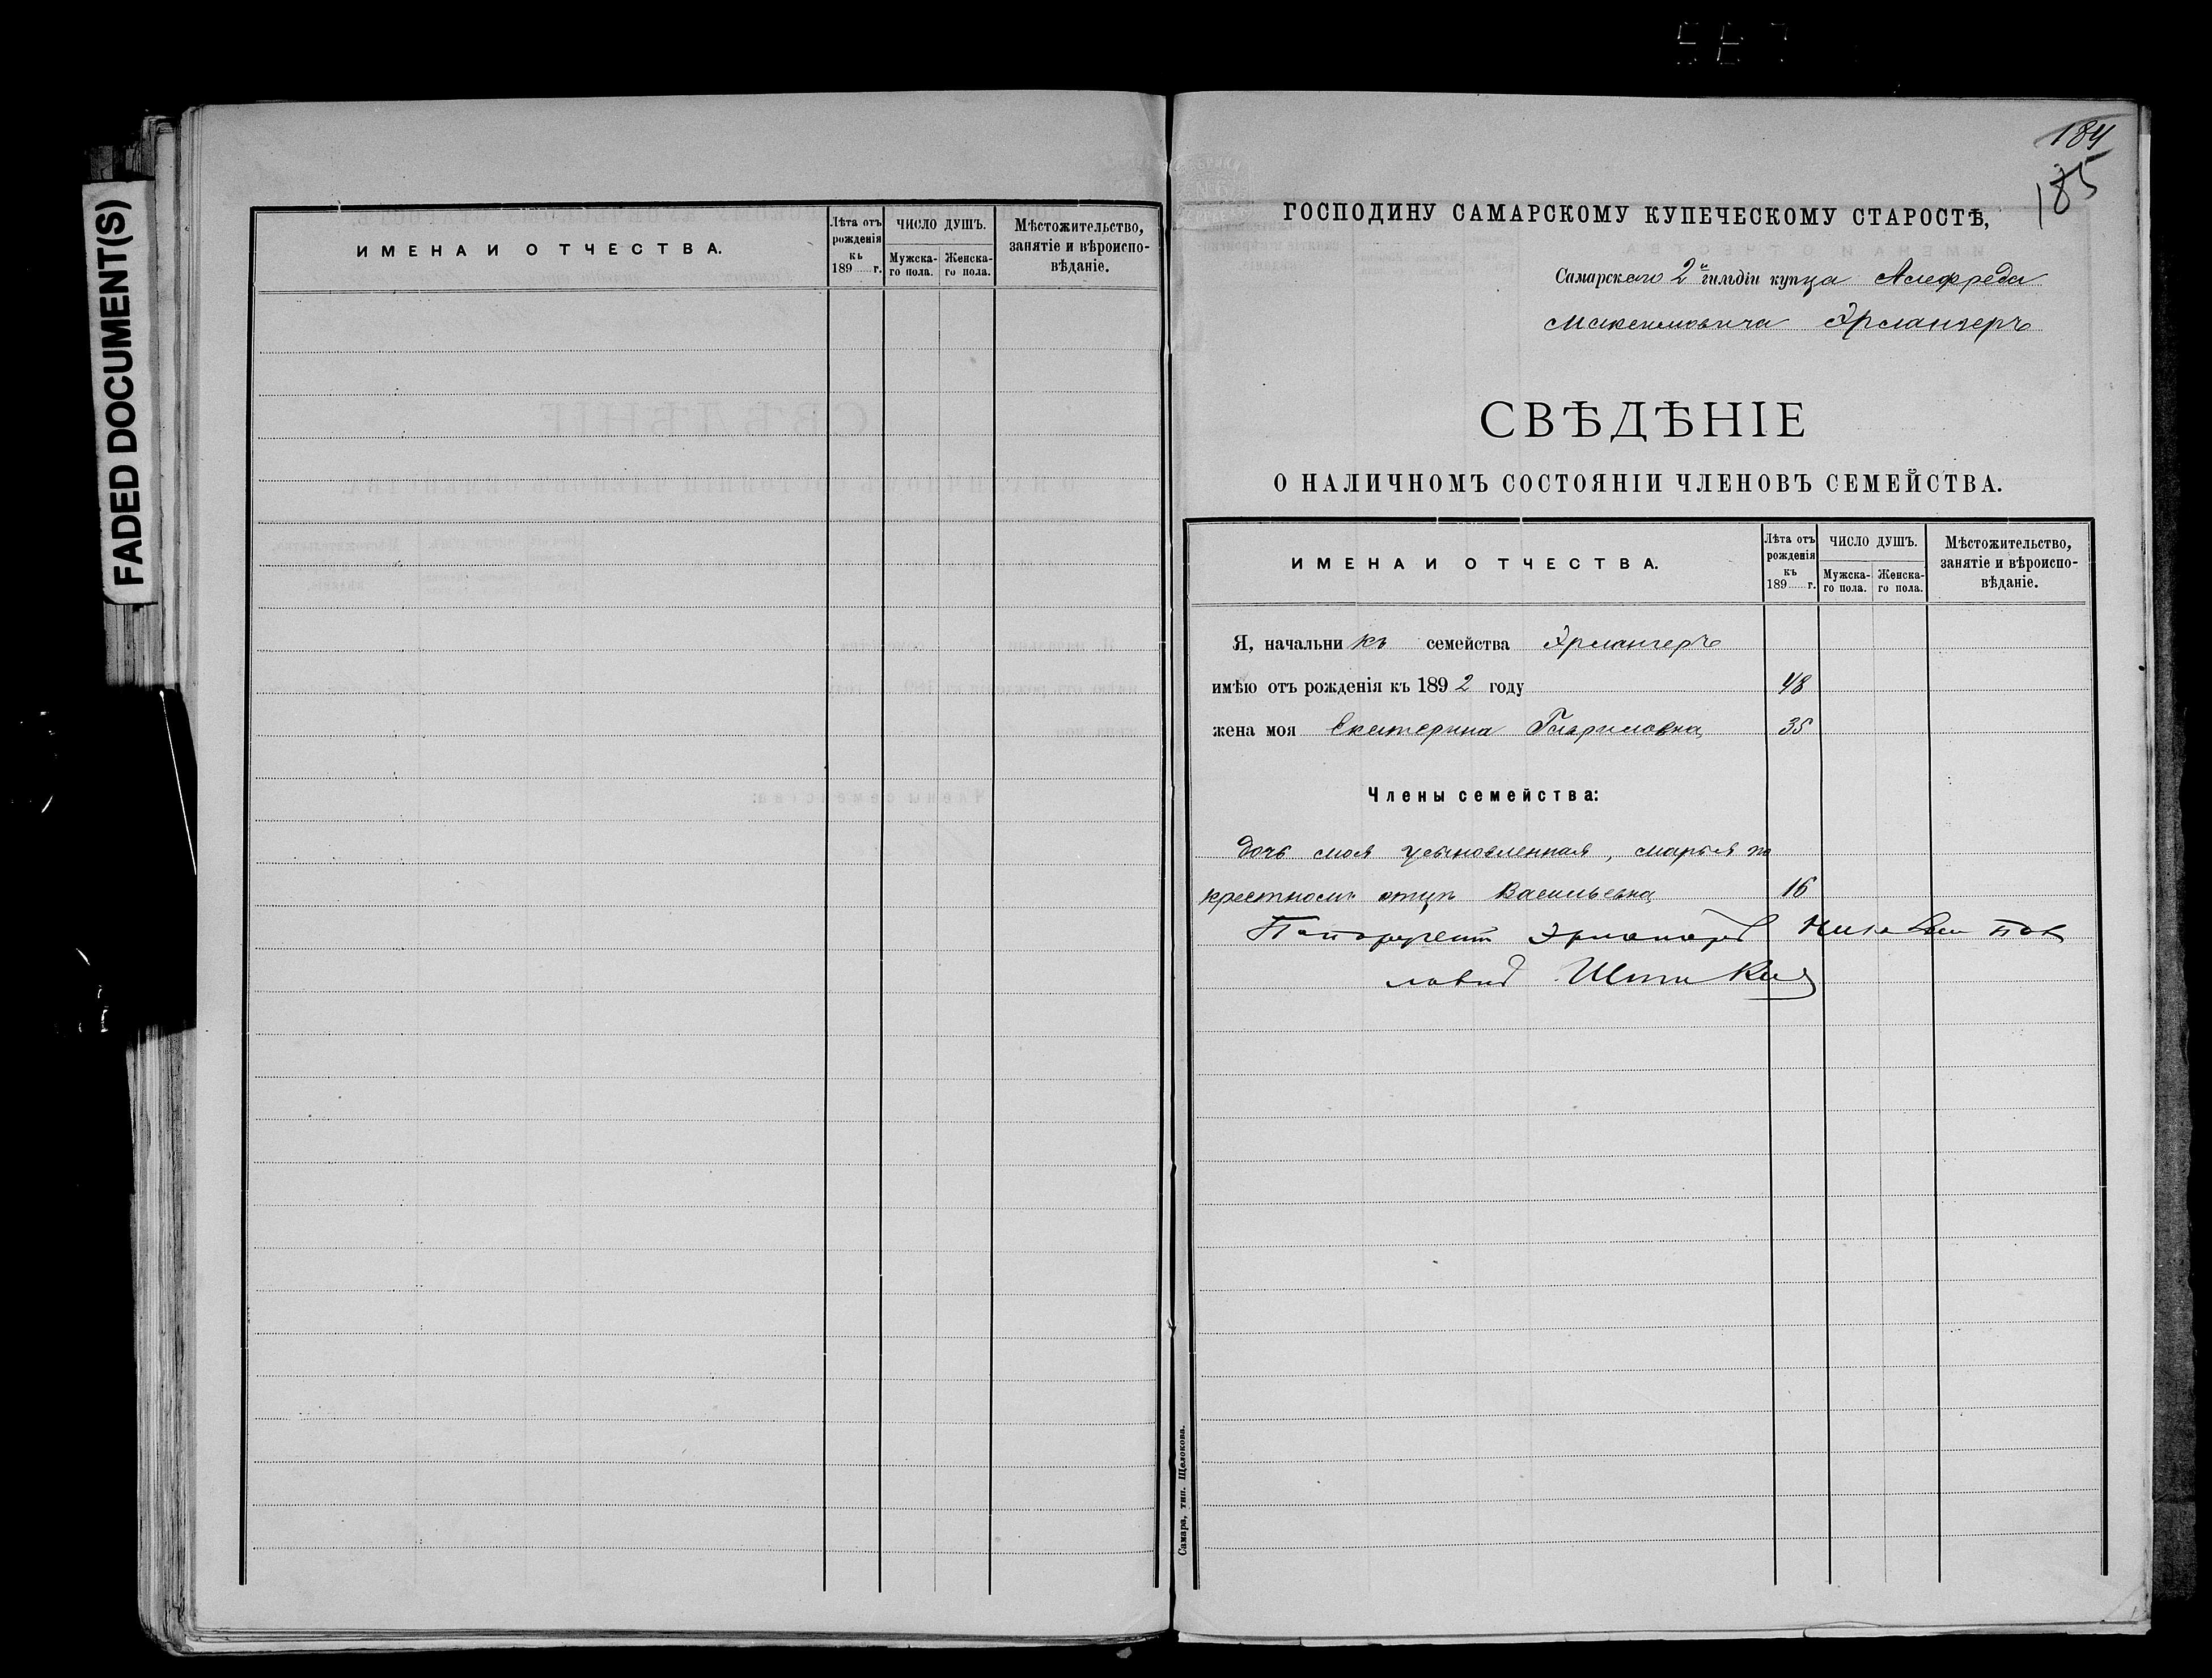 FADED DOCUMENT(S)
ИМЕНА И ОТЧЕСТВА.
Лѣта отъ рожденія къ 189 г.
ЧИСЛО ДУШЪ.
Мужска-го пола.
Женска-го пола.
Мѣстожительство, занятіе и вѣроиспо-вѣданіе.
184
185
ГОСПОДИНУ САМАРСКОМУ КУПЕЧЕСКОМУ СТАРОСТѢ,
Самарскаго 2й гильдіи купца Альфреда
Максимовича Эрлангеръ
СВѢДѢНІЕ
О НАЛИЧНОМЪ СОСТОЯНІИ ЧЛЕНОВЪ СЕМЕЙСТВА.
ИМЕНА И ОТЧЕСТВА.
Лѣта отъ рожденія къ 189 г.
ЧИСЛО ДУШЪ.
Мужска-го пола.
Женска-го пола.
Мѣстожительство, занятіе и вѣроиспо-вѣданіе.
Я, начальникъ семейства Эрлангеръ
имѣю отъ рожденія къ 1892 году 48
жена моя Екатерина Гавриловна 35
Члены семейства:
дочь моя усыновленная, Марья по
крестному отцу Васильевна 16
Эрлангеръ
Самара, тип. Щелокова.